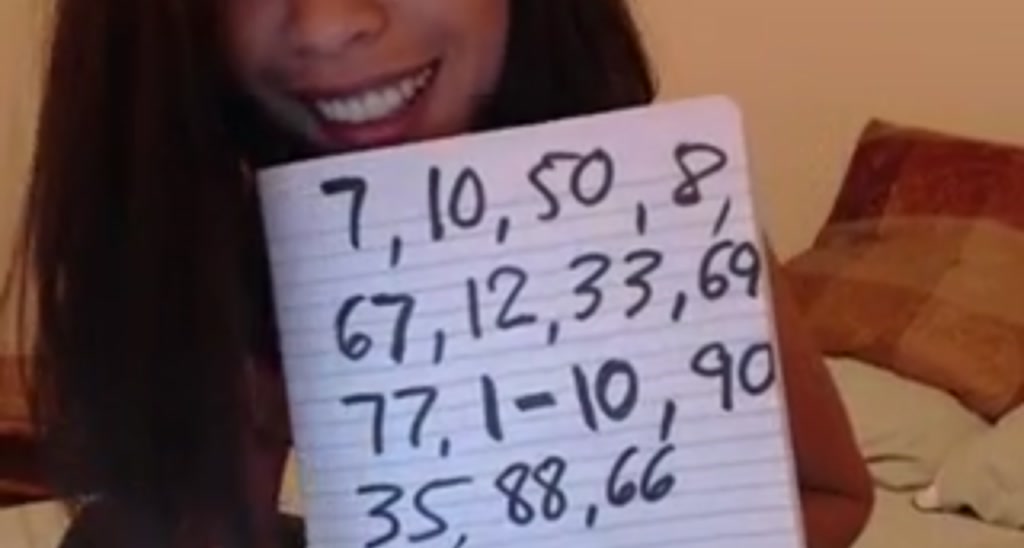 7, 10, 50, 8,
67, 12, 33, 69
77, 1-10, 90
35, 88, 66